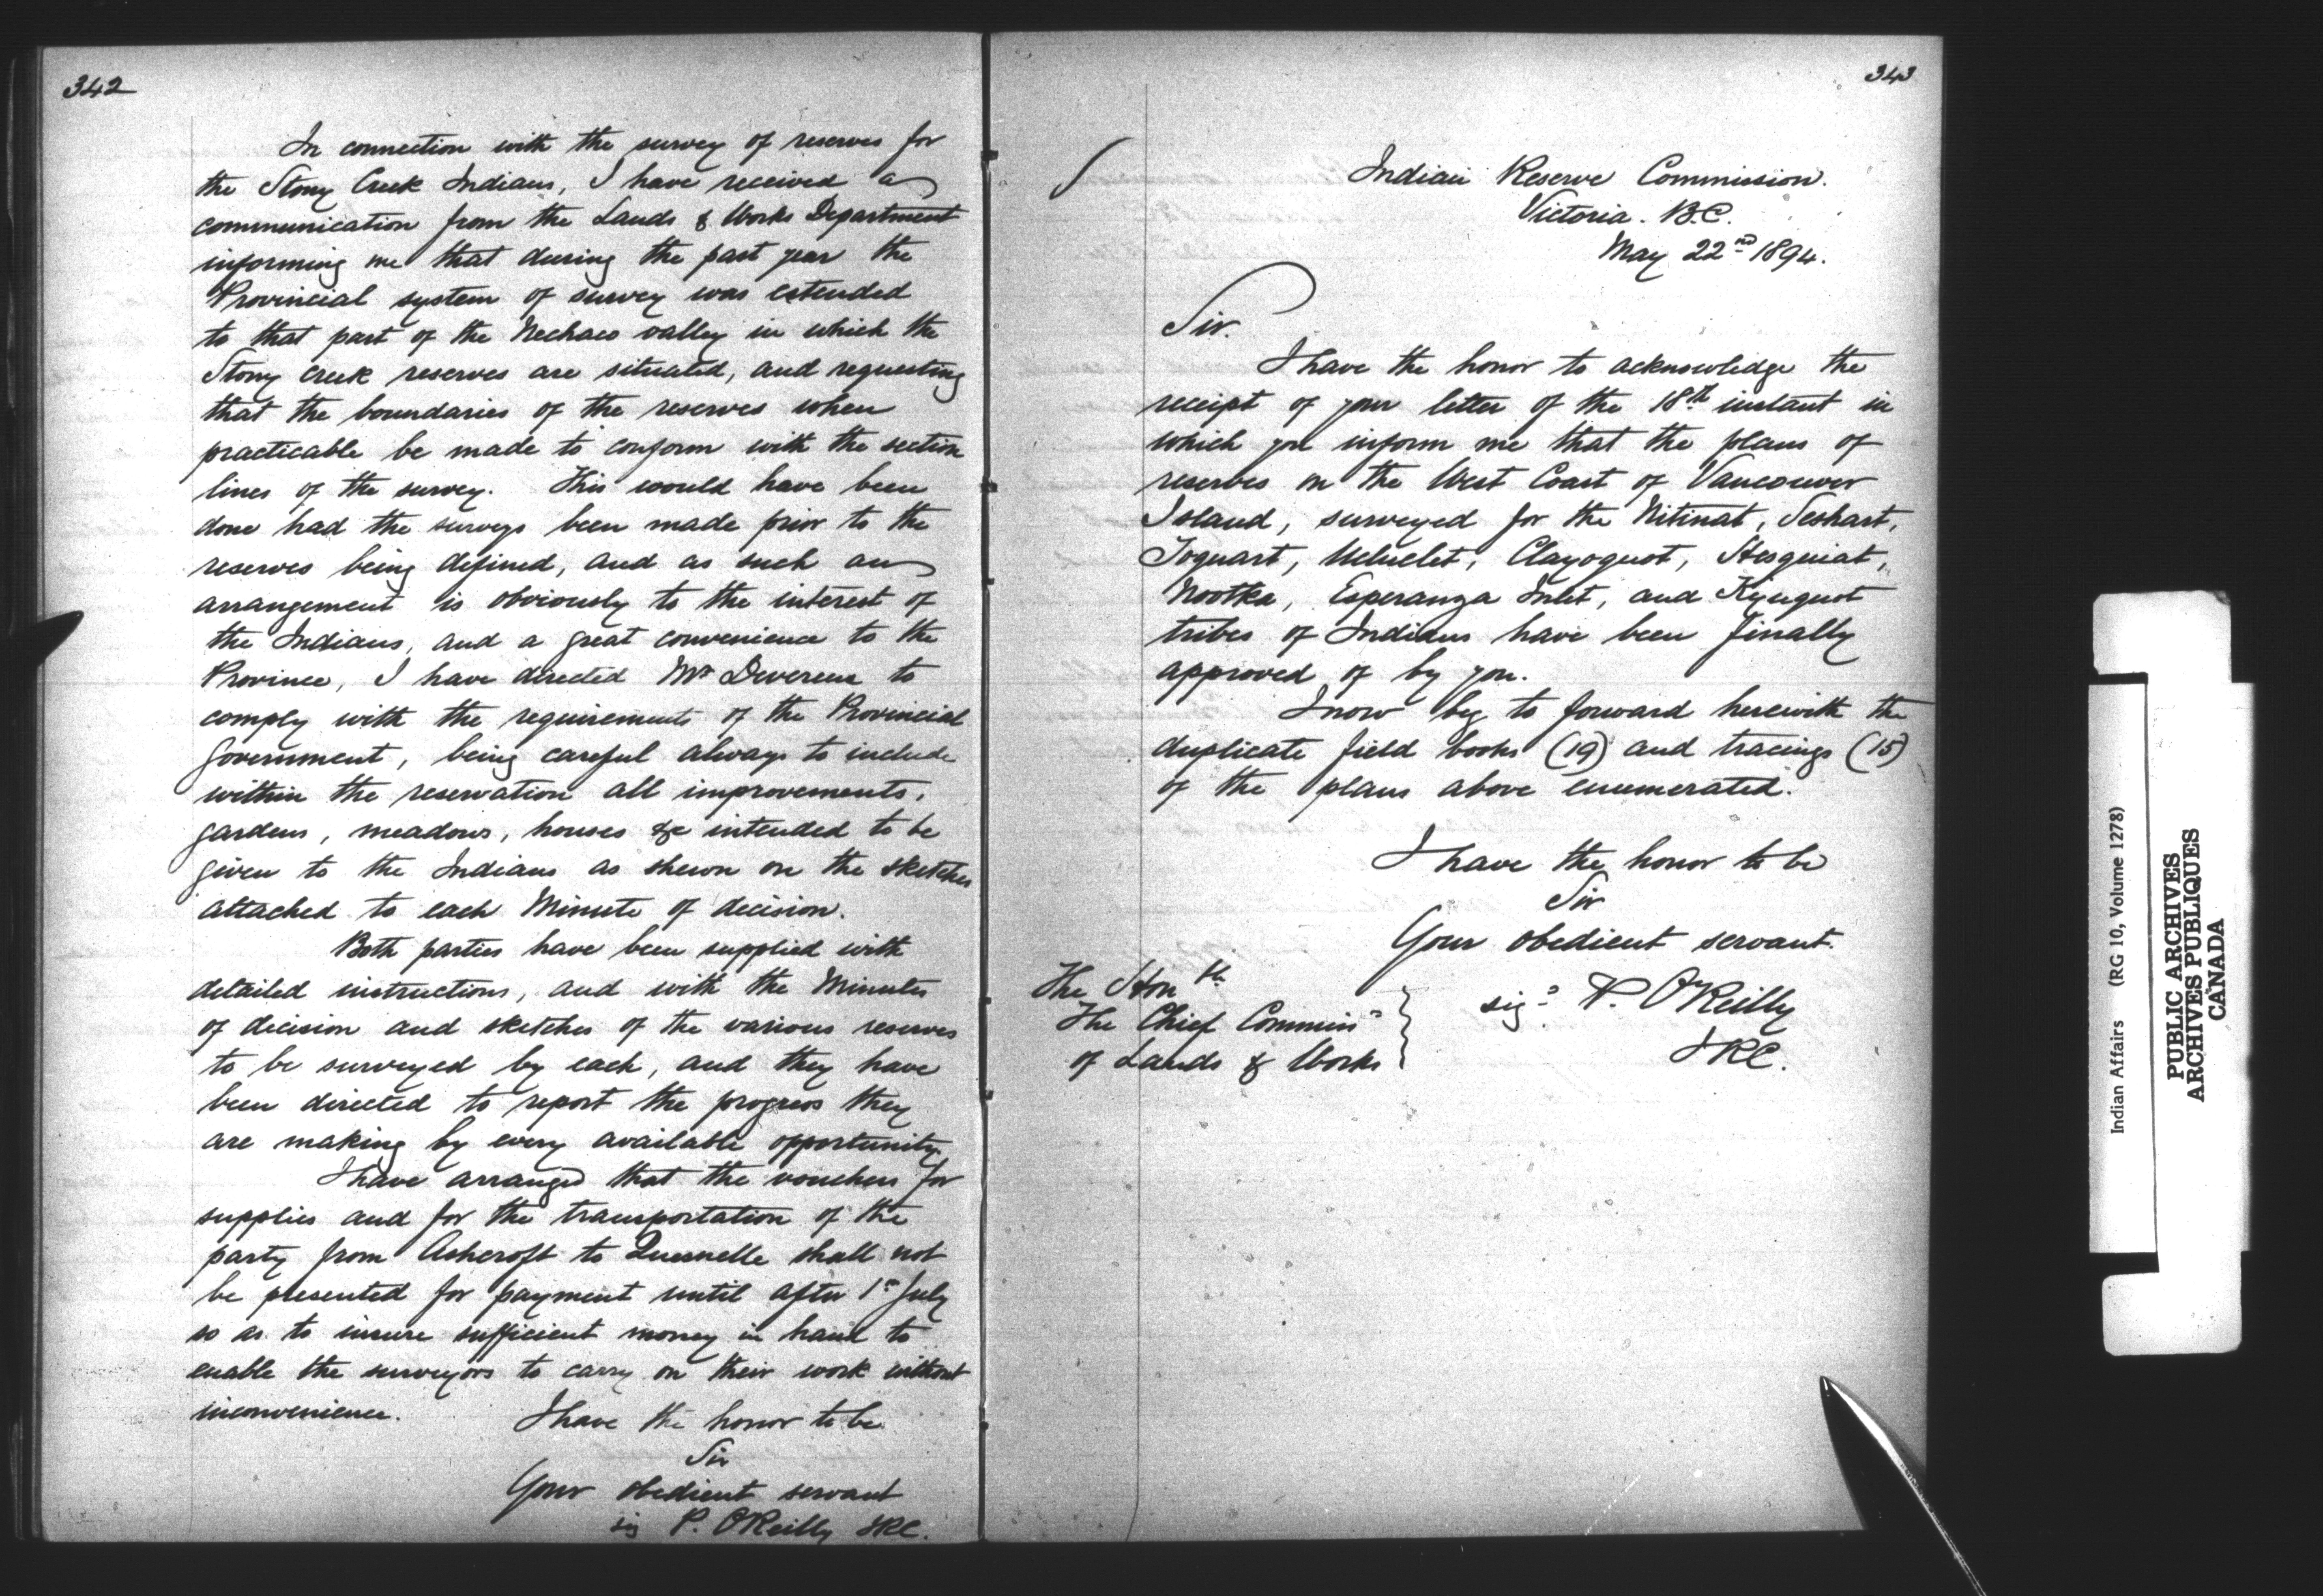 342
In connection with the survey of reserves for
the Stony Creek Indians, I have received a
communication from the Lands & Works Department
informing me that during the past year the
Provincial system of survey was extended
to that part of the Nechaco valley in which the
Stony Creek reserves are situated, and requesting
that the boundaries of the reserves when
practicable be made to conform with the section
lines of the survey. This would have been
done had the surveys been made prior to the
reserves being defined, and as such an
arrangement is obviously to the interest of
the Indians, and a great convenience to the
Province, I have directed Mr Devereux to
comply with the requirements of the Provincial
Government, being careful always to include
within the reservation all improvements,
gardens, meadows, houses &c intended to be
given to the Indians as shewn on the sketches
attached to each Minute of decision.
Both parties have been supplied with
detailed instructions, and with the Minutes
of decision and sketches of the various reserves
to be surveyed by each, and they have
been directed to report the progress they
are making by every available opportunity.
I have arranged that the vouchers for
supplies and for the transportation of the
party from Ashcroft to Quesnelle shall not
be presented for payment until after 1st July
so as to insure sufficient money in hand to
enable the surveyors to carry on their work without
inconvenience.
I have the honor to be
Sir
Your obedient servant
sig P. O'Reilly IRC.
343
Indian Reserve Commission.
Victoria. B.C.
May 22nd 1894.
Sir.
I have the honor to acknowledge the
receipt of your letter of the 18th instant in
which you inform me that the plans of
reserves on the West Coast of Vancouver
Island, surveyed for the Nitinat, Seshart,
Toquart, Ucluelet, Clayoquot, Hesquiat,
Nootka, Esperanza Inlet, and Kyuquot
tribes of Indians have been finally
approved of by you.
I now beg to forward herewith the
duplicate field books (19) and tracings (15)
of the plans above enumerated.
I have the honor to be
Sir
Your obedient servant.
sigd P. O'Reilly
IRC.
The Honble
The Chief Commissr
of Lands & Works
Indian Affairs (RG 10, Volume 1278)
PUBLIC ARCHIVES
ARCHIVES PUBLIQUES
CANADA